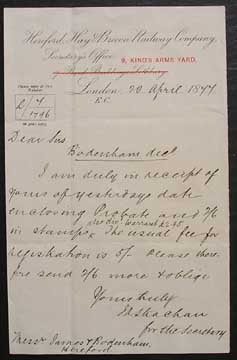 Hereford, Hay & Brecon Railway Company.
Secretary's Office
9, KING'S ARMS YARD,
London, 20 April 1877
E.C.
Dear Sirs
Bodenham decd
I am duly in receipt of
yours of yesterdays date
enclosing Probate and 2/6
in stamps. The usual fee for
registration is 5/- Please there-
fore send 2/6 more & oblige
Yours truly
for the Secretary
Messrs James & Bodenham
Hereford